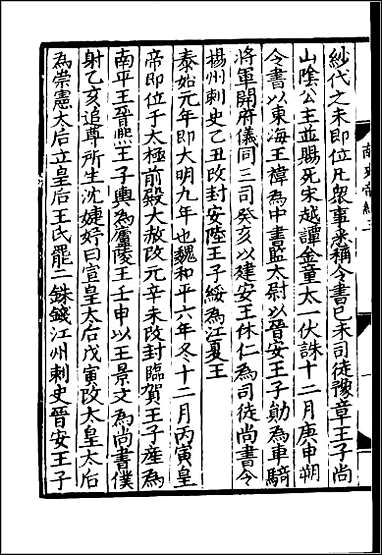 紗代之未即位凡衆事悉稱令書己未司徒豫章王子尚
山陰公主並賜死宋越譚金童太一伏誅十二月庚申朔
令書以東海王禕為中書監太尉以晉安王子勛為車騎
將軍開府儀同三司癸亥以建安王休仁為司徒尚書令
揚州刺史乙丑改封安陸王子綏為江夏王
泰始元年即大明九年也魏和平六年冬十二月丙寅皇
帝即位于太極前殿大赦改元辛未改封臨賀王子產為
南平王晉熙王子輿為廬陵王壬申以王景文為尚書僕
射乙亥追尊所生沈婕妤曰宣皇太后戊寅改太皇太后
為崇憲太后立皇后王氏罷二銖錢江州刺史晉安王子